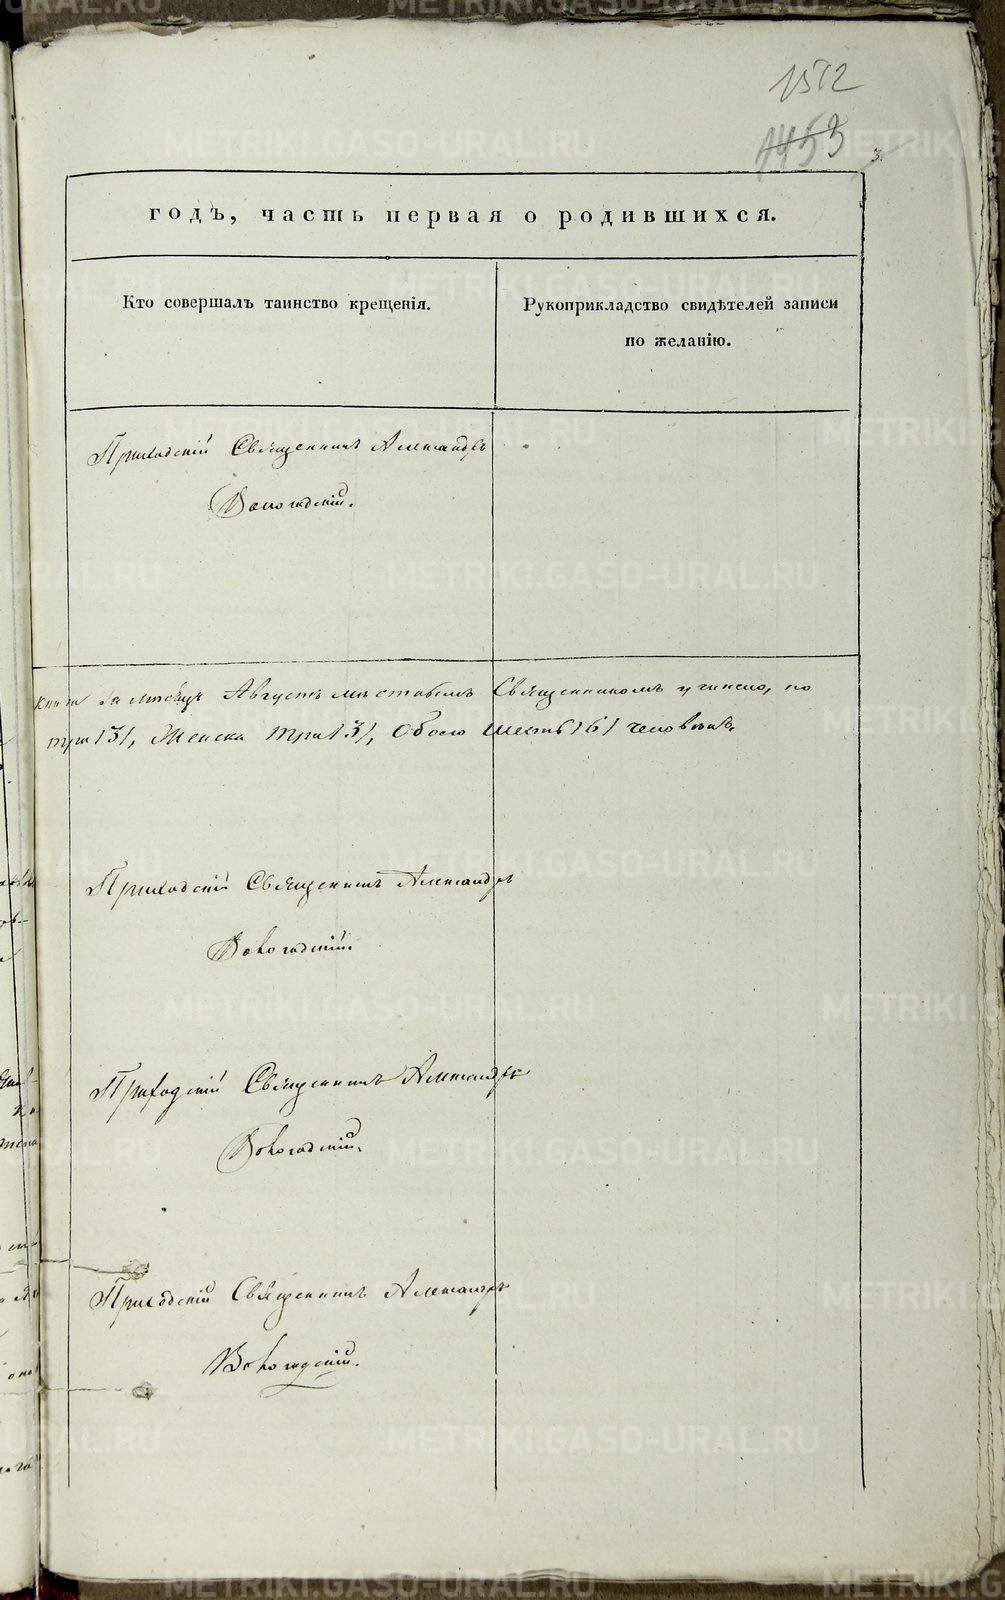 1512
1453
3.
годъ, часть первая о родившихся.
Кто совершалъ таинство крещенія.
Рукоприкладство свидѣтелей записи
по желанію.
Приходскій Священникъ Александръ
Вологодскій.
за мѣсяцъ Августъ Священникомъ учинено, по
три /3/, Женска три /3/, Обоего шесть /6/ человѣкъ.
Приходскій Священникъ Александръ
Вологодскій.
Приходскій Священникъ Александръ
Вологодскій.
Приходскій Священникъ Александръ
Вологодскій.
METRIKI.GASO-URAL.RU